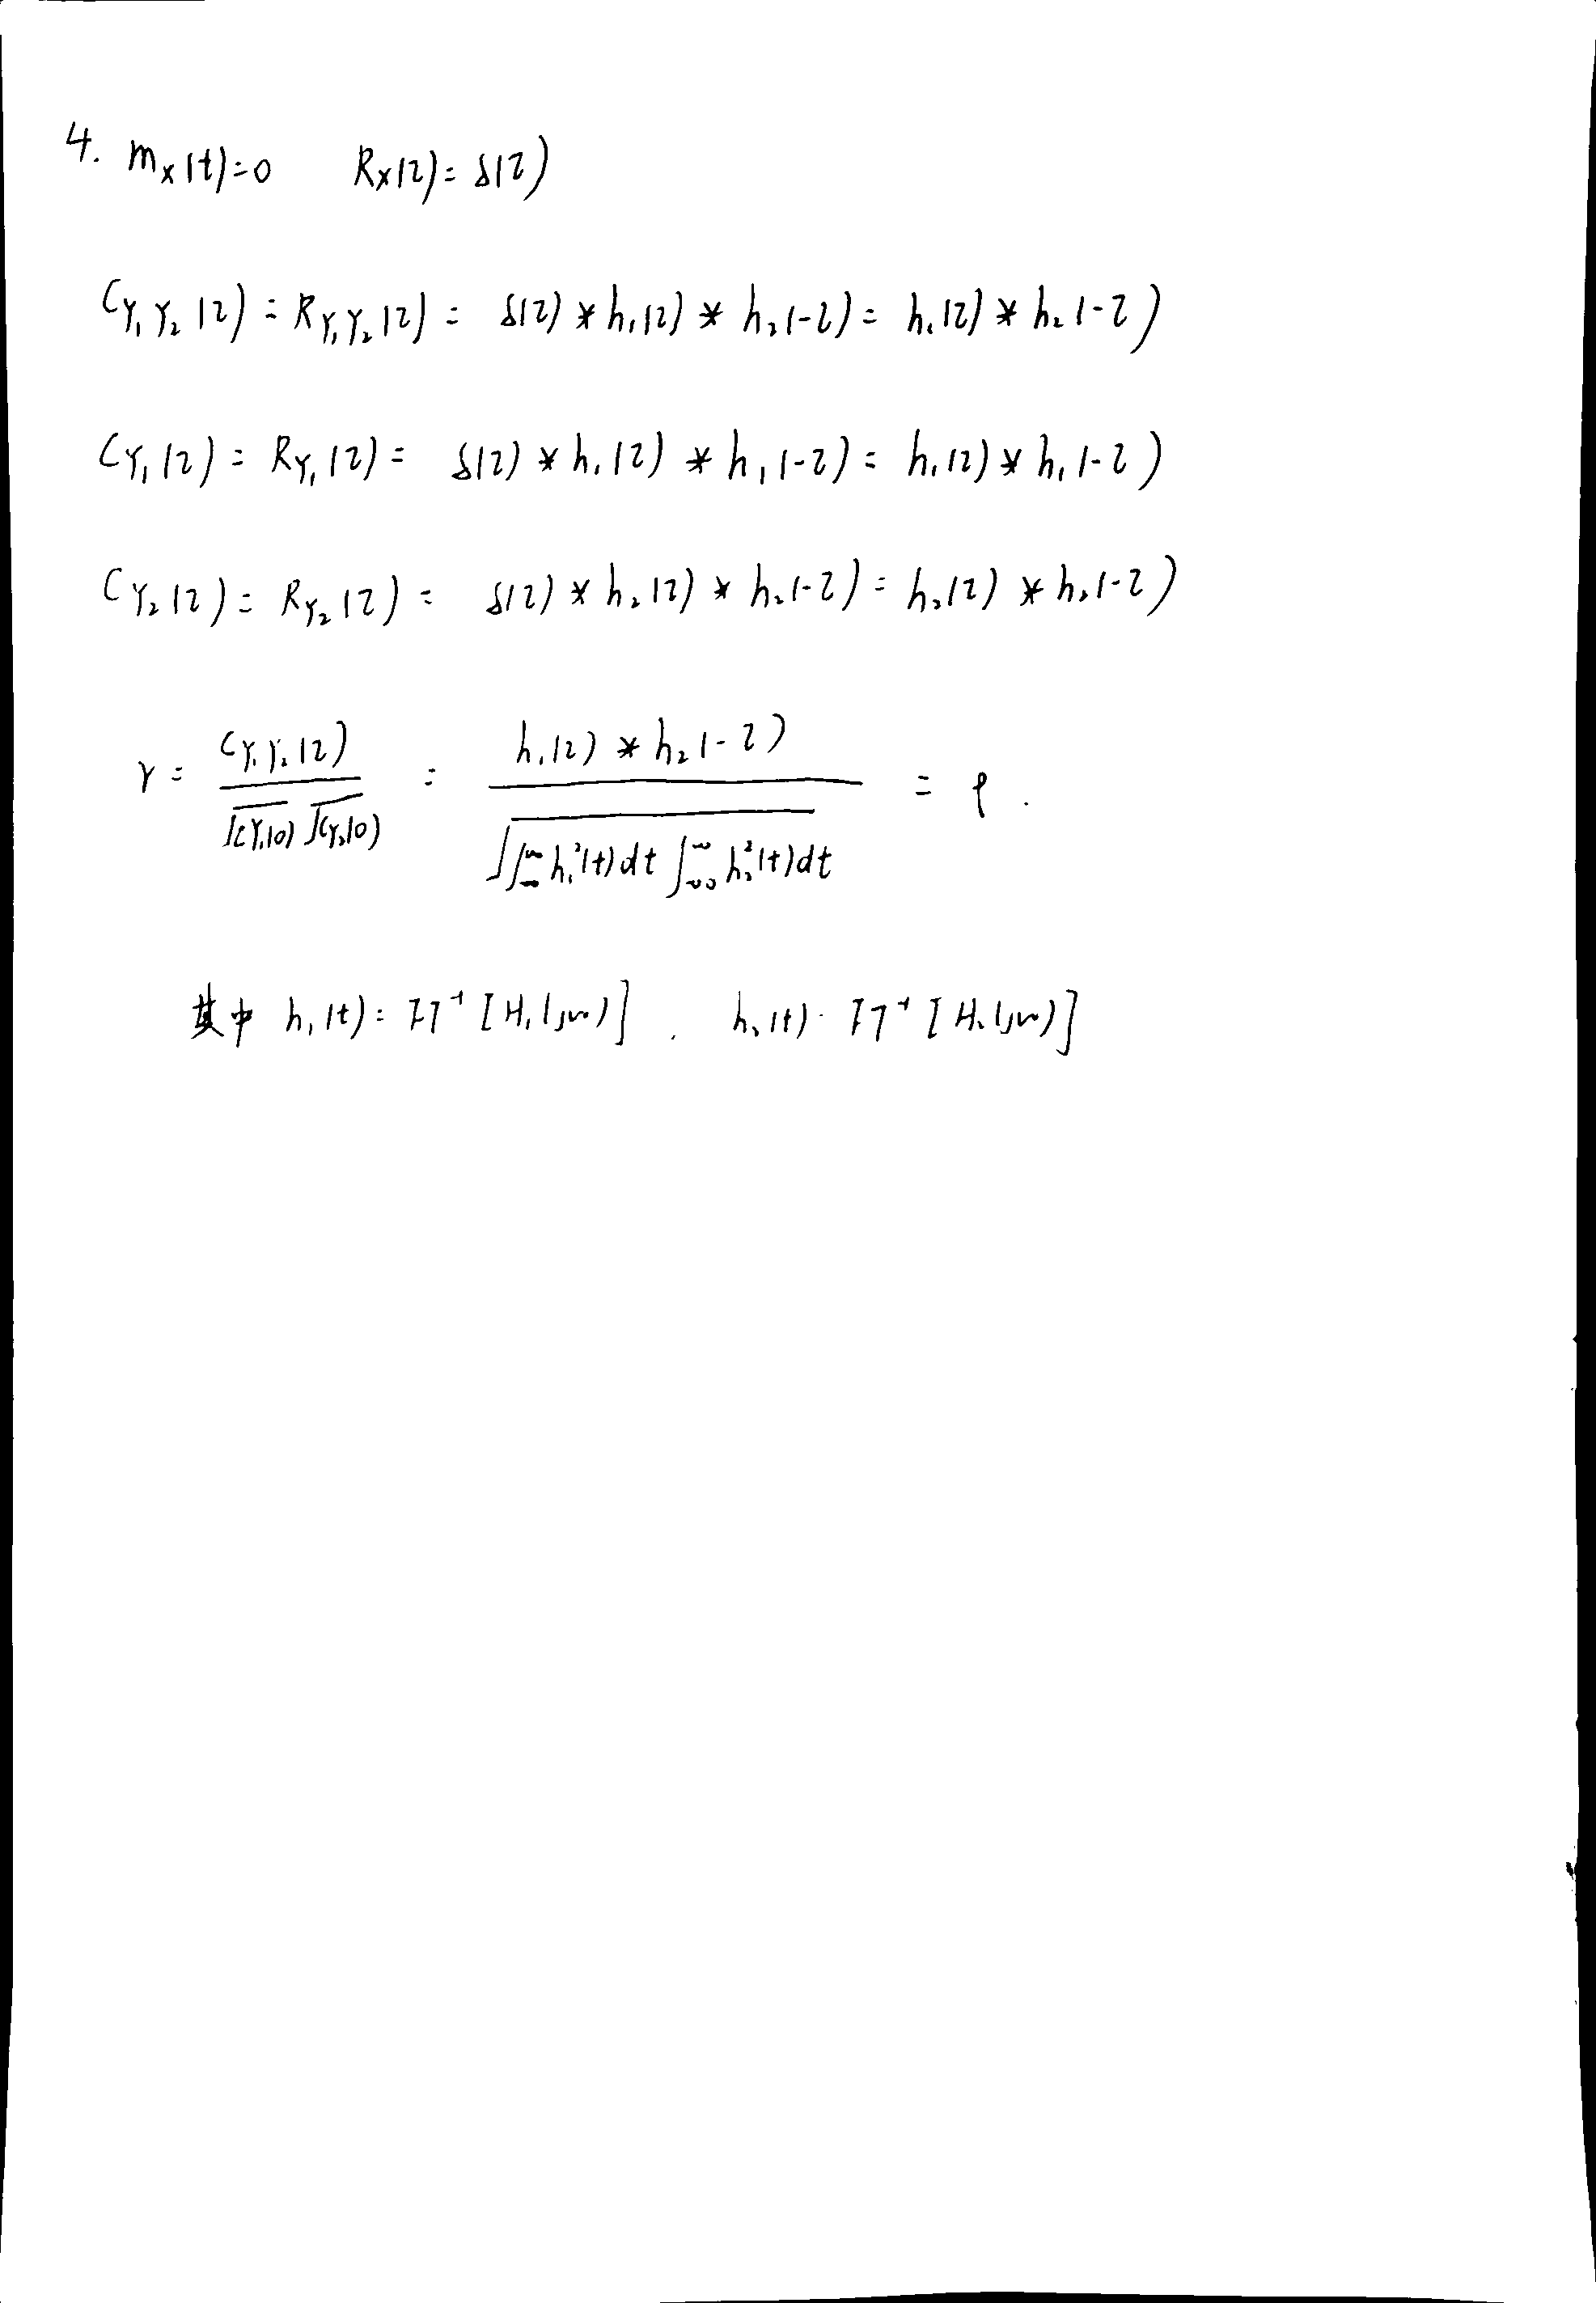 4. m_X(t)=0 R_X(τ)=δ(τ)
C_{Y₁Y₂}(τ)=R_{Y₁Y₂}(τ)= δ(τ)*h₁(τ)*h₂(-τ)=h₁(τ)*h₂(-τ)
C_{Y₁}(τ)=R_{Y₁}(τ)= δ(τ)*h₁(τ)*h₁(-τ)=h₁(τ)*h₁(-τ)
C_{Y₂}(τ)=R_{Y₂}(τ)= δ(τ)*h₂(τ)*h₂(-τ)=h₂(τ)*h₂(-τ)
γ = \frac{C_{Y₁Y₂}(τ)}{\sqrt{C_{Y₁}(0)}\sqrt{C_{Y₂}(0)}} = \frac{h₁(τ)*h₂(-τ)}{\sqrt{∫_{-∞}^{∞}h₁²(t)dt ∫_{-∞}^{∞}h₂²(t)dt}} = ρ.
其中 h₁(t)=FT⁻¹[H₁(jw)], h₂(t)=FT⁻¹[H₂(jw)]